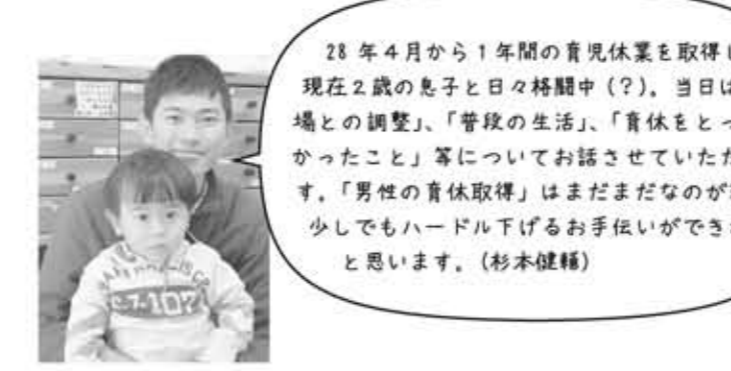 28年4月から1年間の育児休業を取得
現在2歳の息子と日々格闘中(?)。当日は
場との調整」、「普段の生活」、「育休をとっ
かったこと」等についてお話させていただ
す。「男性の育休取得」はまだまだなのが
少しでもハードル下げるお手伝いができ
と思います。(杉本健輔)
C-7-107